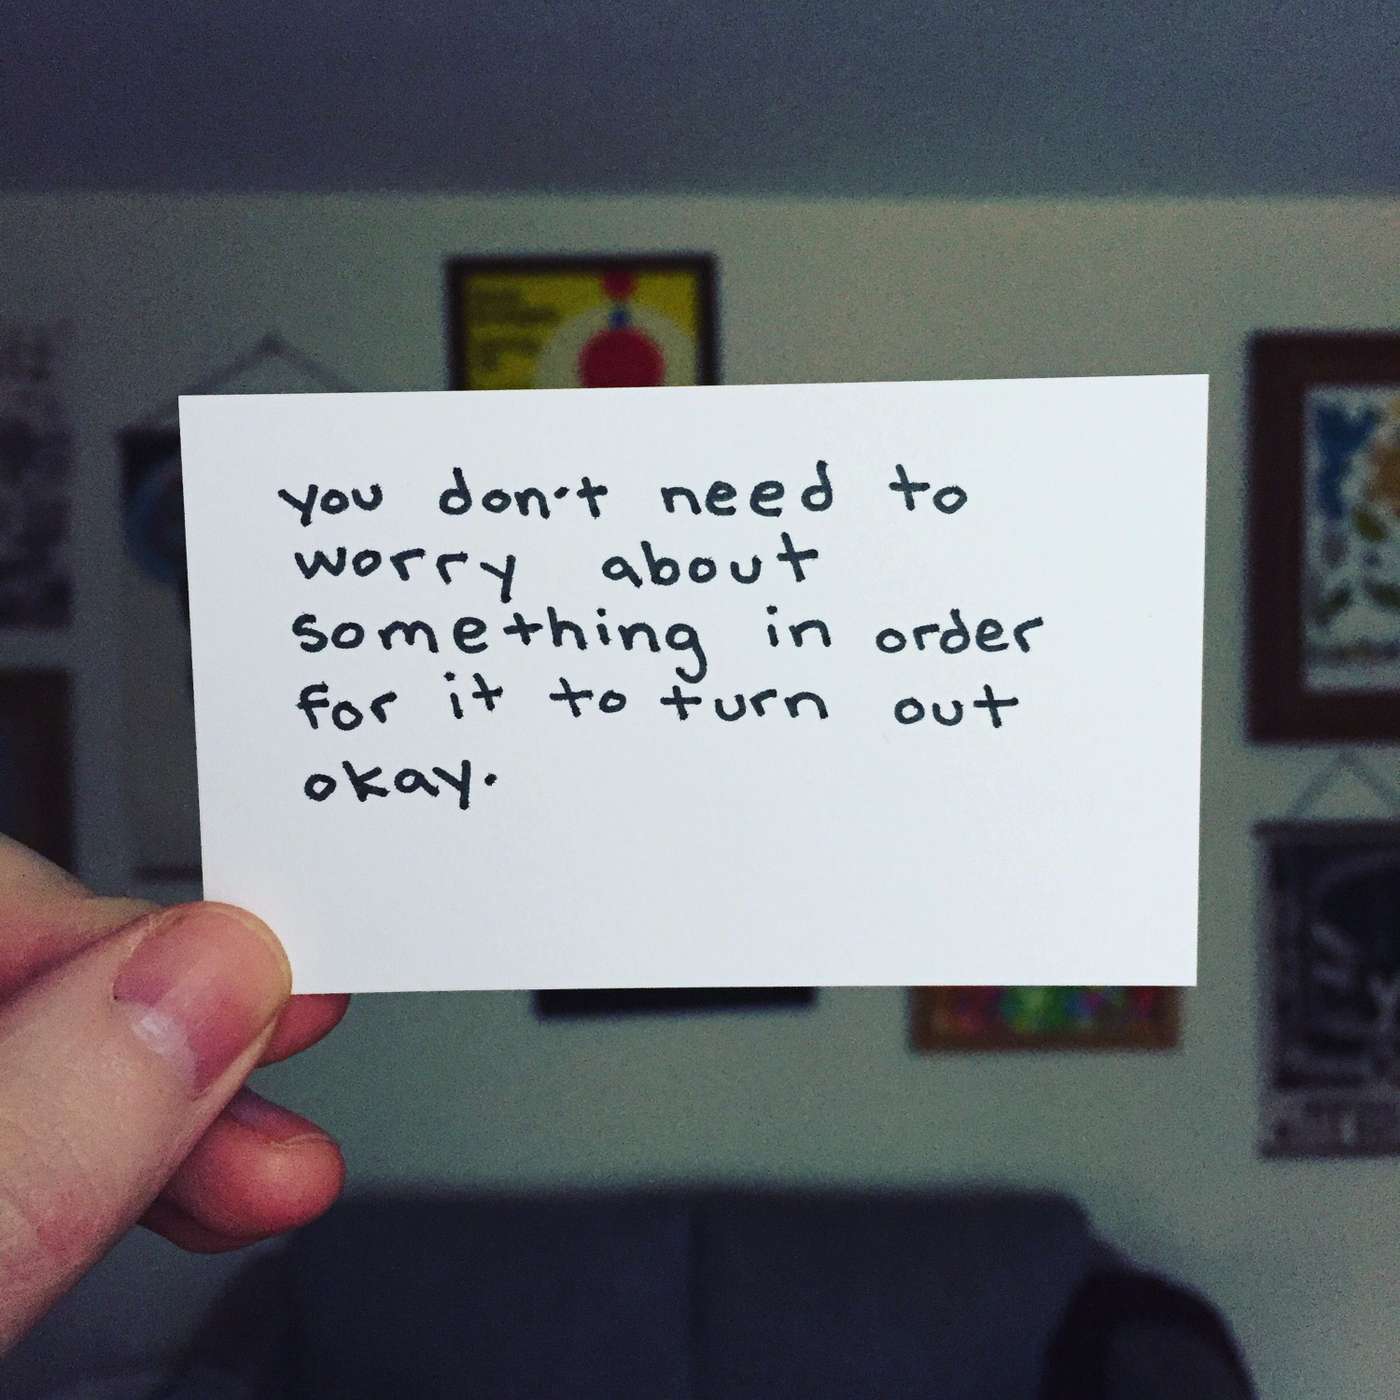 you don't need to
worry about
something in order
for it to turn out
okay.